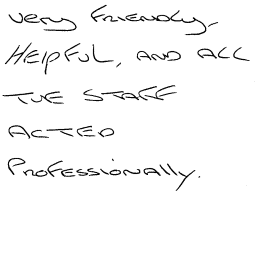 very FRIENDLY,
HELPFUL, AND ALL
THE STAFF
ACTED
Professionally.